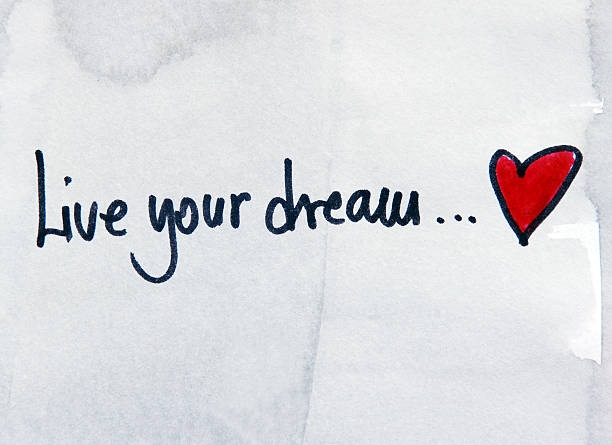 Live your dream...